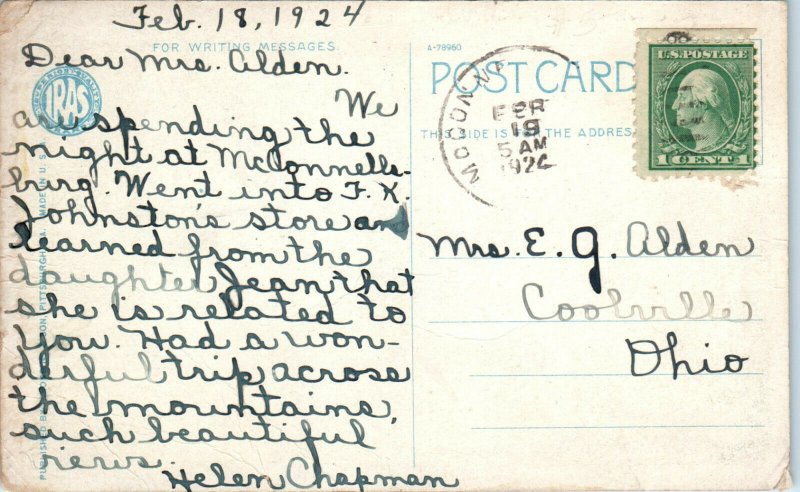 Feb. 18, 1924
FOR WRITING MESSAGES.
Dear Mrs. Alden.
IRAS
We
are spending the
night at McConnells-
burg. Went into F. K.
Johnston's store and
learned from the
daughter Jean that
she is related to
you. Had a won-
derful trip across
the mountains,
such beautiful
views.
Helen Chapman
MADE IN U.S.A.
A-78960
POST CARD
THIS SIDE IS FOR THE ADDRESS
FEB
19
5 AM
1924
U.S. POSTAGE
1 CENT 1
Mrs. E. G. Alden
Coolville
Ohio